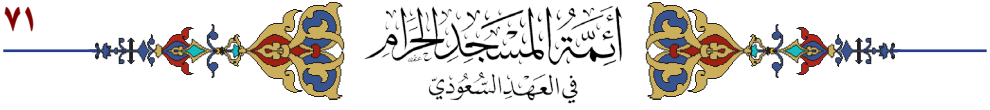 ٧١
أَئِمَّةُ المَسْجِدِ الحَرَامِ
في العَهْدِ السُّعُودِيّ